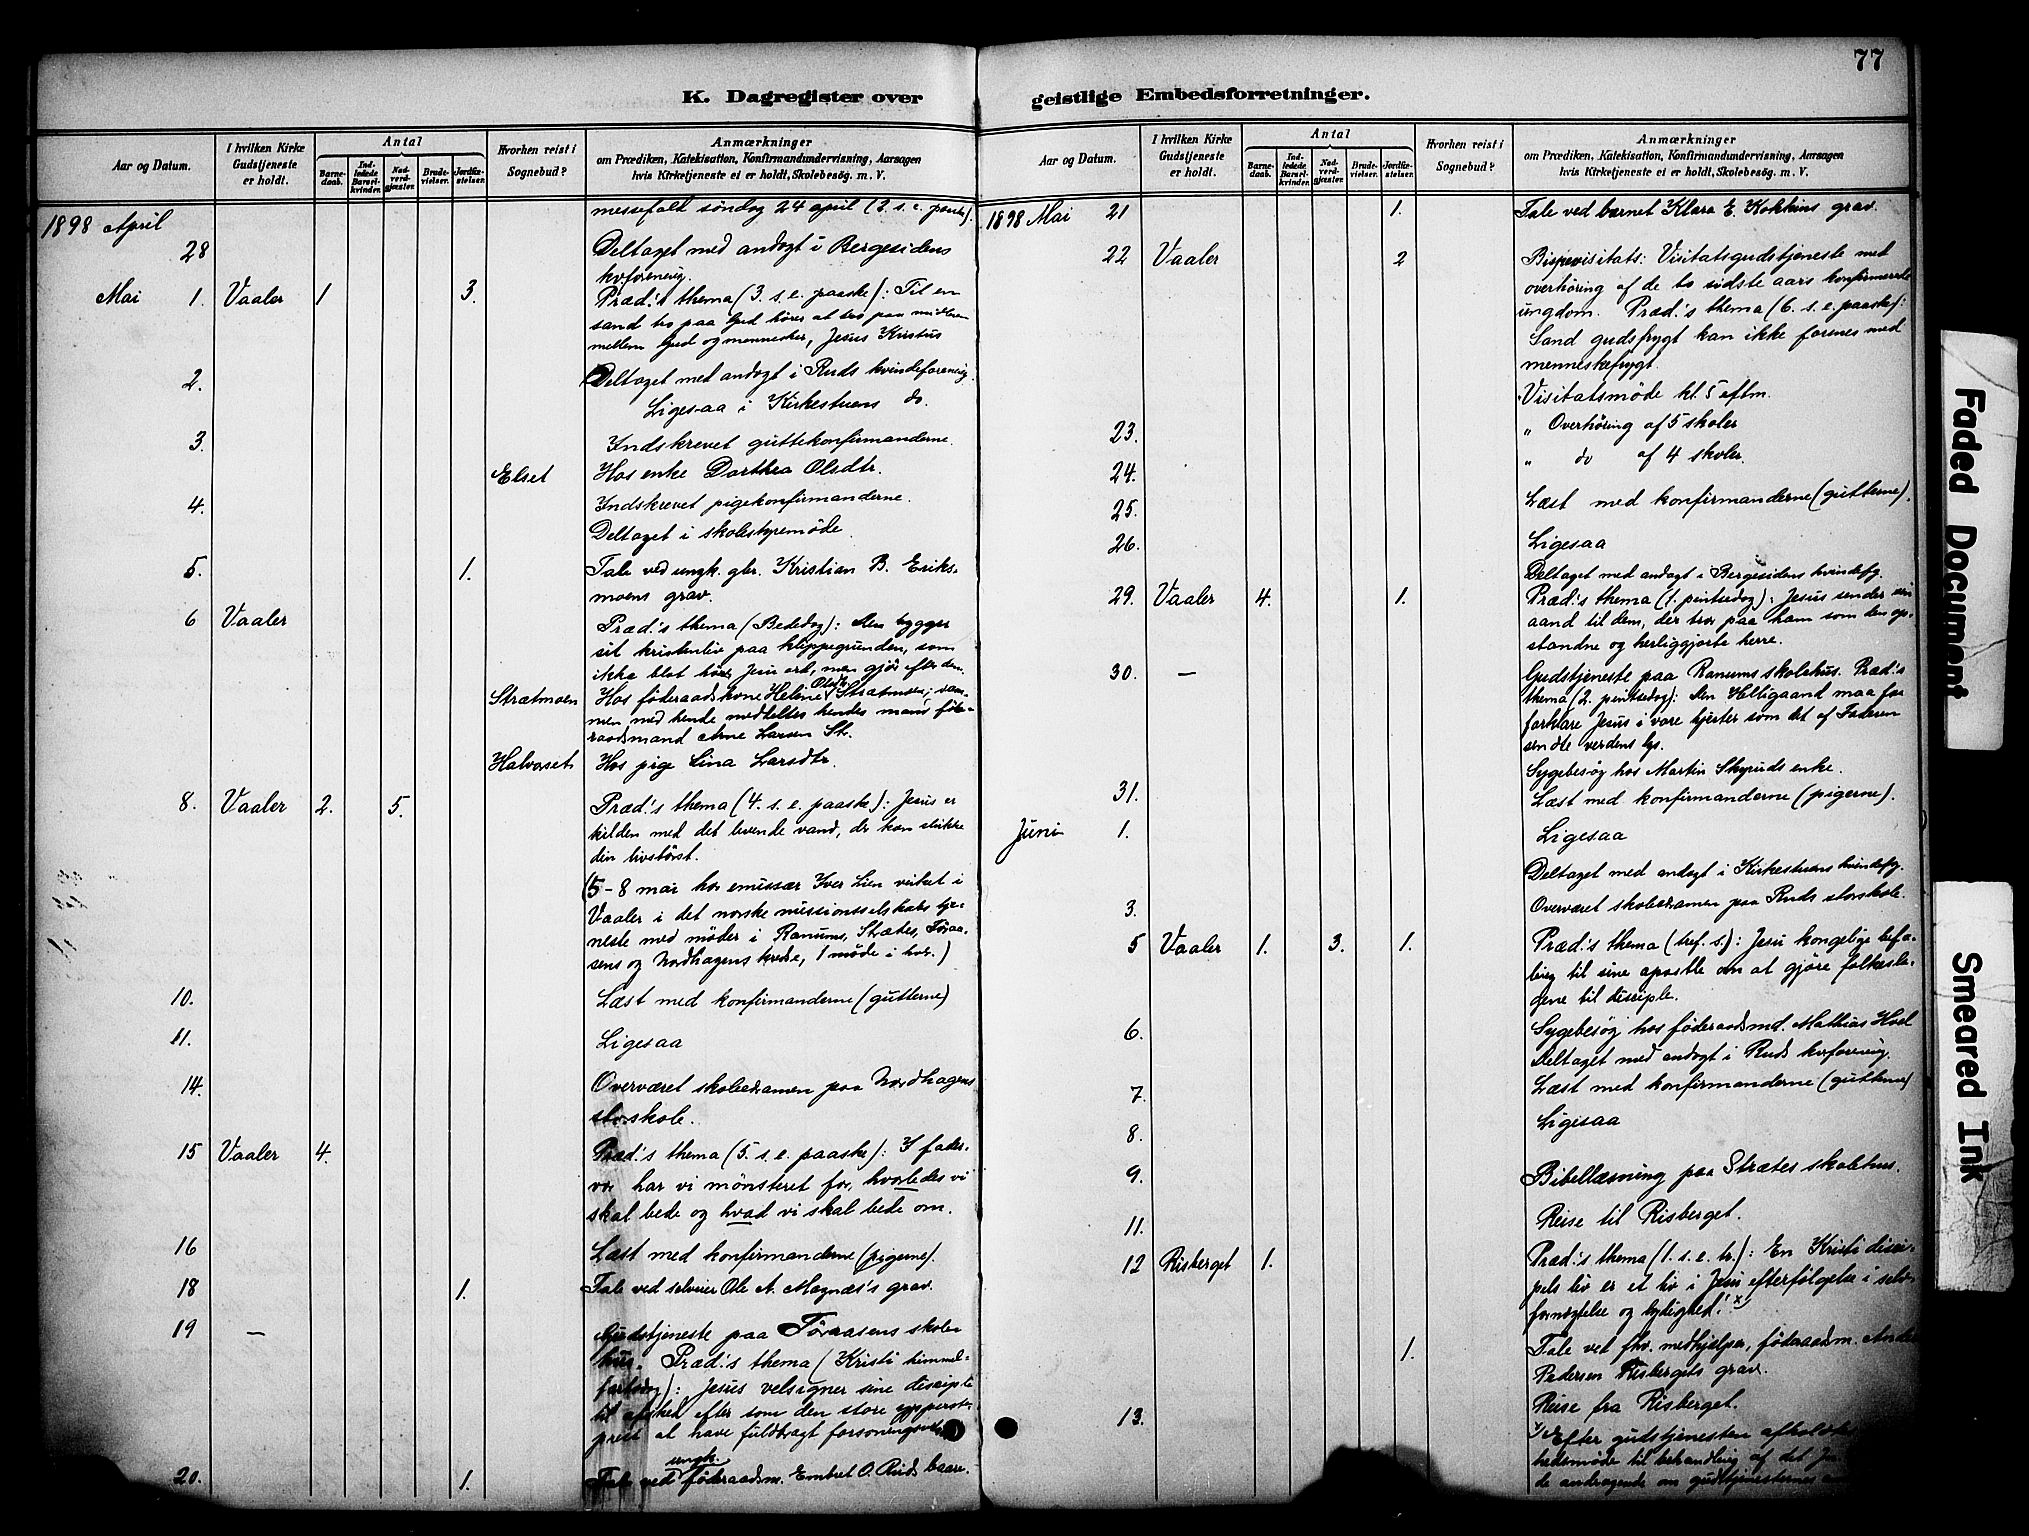 77
K. Dagregister over
Aar og Datum. I hvilken Kirke Gudstjeneste er holdt. Antal Barnedaab. Indledede Barselkvinder. Nadverdgjæster. Brudevielser. Jordfæstelser. Hvorhen reist i Sognebud? Anmærkninger om Prædiken, Katekisation, Konfirmandundervisning, Aarsagen hvis Kirketjeneste ei er holdt, Skolebesøg. m. V.
1898 April messefald søndag 24 april (2. s. e. paaske).
28 Deltaget med andagt i Bergesidens
kvforening.
Mai 1. Vaaler 1 3. Præd.'s thema (3. s. e. paaske): Til en
sand tro paa Gud hører at tro paa midleren
mellem Gud og mennesker, Jesus Kristus
2. Deltaget med andagt i Ruds kvindeforening.
Ligesaa i Kirkestuens do.
3. Indskrevet guttekonfirmanderne.
Elset Hos enke Dorthea Olsdtr.
4. Indskrevet pigekonfirmanderne.
Deltaget i skolestyremöde.
5. 1. Tale ved ungk. gbr. Kristian B. Eriks-
moens grav.
6 Vaaler Præd.'s thema (Bededag): Den bygger
sit kristenliv paa klippegrunden, som
ikke blot hörer Jesu ord, men gjör efter dem.
Strætmoen Hos föderaadskone Heline Olsdtr. Strætmoen; sam-
men med hende meddeltes hendes mand föde-
raadsmand Arne Larsen Str.
Halvorset Hos pige Lina Larsdtr.
8. Vaaler 2. 5. Præd.'s thema (4. s. e. paaske): Jesus er
kilden med det levende vand, der kan slukke
din livstörst.
(5-8 mai har emissær Iver Lien virket i
Vaaler i det norske missionsselskabs tje-
neste med möder i Ranums, Strætes, Töraa-
sens og Nordhagens kredse, 1 möde i hver.)
10. Læst med konfirmanderne (gutterne)
11. Ligesaa
14. Overværet skoleexamen paa Nordhagens
storskole.
15 Vaaler 4. Præd.'s thema (5. s. e. paaske): I fader-
vor har vi mønsteret for, hvorledes vi
skal bede og hvad vi skal bede om.
16 Læst med konfirmanderne (pigerne).
18 1. Tale ved selveier Ole A. Magnæs's grav.
19 — Gudstjeneste paa Töraasens skole-
hus. Præd.'s thema (Kristi himmel-
fartsdag): Jesus velsigner sine disciple
til afsked efter som den store ypperste-
prest at have fuldbragt forsoningen
20. 1. Tale ved ungk. föderaadsm. Embret O. Ruds baare.
geistlige Embedsforretninger.
Aar og Datum. I hvilken Kirke Gudstjeneste er holdt. Antal Barnedaab. Indledede Barselkvinder. Nadverdgjæster. Brudevielser. Jordfæstelser. Hvorhen reist i Sognebud? Anmærkninger om Prædiken, Katekisation, Konfirmandundervisning, Aarsagen hvis Kirketjeneste ei er holdt, Skolebesøg. m. V.
1898 Mai 21 1. Tale ved barnet Klara E. Kokkins grav.
22 Vaaler 2 Bispevisitats: Visitatsgudstjeneste med
overhöring af de to sidste aars konfirmerede
ungdom. Præd.'s thema (6. s. e. paaske):
Sand gudsfrygt kan ikke forenes med
menneskefrygt.
Visitatsmöde kl. 5 eftm.
23. „ Overhöring af 5 skoler
24. „ do af 4 skoler.
25. Læst med konfirmanderne (gutterne).
26. Ligesaa
Deltaget med andagt i Bergesidens kvindefg.
29. Vaaler 4. 1. Præd.'s thema (1. pintsedag): Jesus sender sin
aand til dem, der tror paa ham som den op-
standne og herliggjorte herre.
30. — Gudstjeneste paa Ranums skolehus. Præd.'s
thema (2. pintsedag): Den Helligaand maa faa
forklare Jesus i vore hjerter som det af Faderen
sendte verdens lys.
Sygebesög hos Martin Skyruds enke.
31. Læst med konfirmanderne (pigerne).
Juni 1. Ligesaa
Deltaget med andagt i Kirkestuens kvindefg.
3. Overværet skoleexamen paa Ruds storskole.
5 Vaaler 1. 3. 1. Præd.'s thema (tref. s.): Jesu kongelige befa-
ling til sine apostle om at gjöre folkesla-
gene til disciple.
6. Sygebesög hos föderaadsmd. Mathias Hoel
Deltaget med andagt i Ruds kvforening.
7. Læst med konfirmanderne (gutterne)
8. Ligesaa
9. Bibellæsning paa Strætes skolehus.
11. Reise til Risberget.
12 Risberget 1. Præd.'s thema (1. s. e. tr.): En Kristi disci-
pels liv er et liv i Jesu efterfölgelse i selv-
fornegtelse og lydighed! x)
1. Tale ved fhv. medhjelper, föderaadm. Anders
Pedersen Risbergets grav.
13. Reise fra Risberget.
x) Efter gudstjenesten afholdtes
hedsmöde til behandling af det
de andragende om gudstjenesternes
Faded Document
Smeared Ink